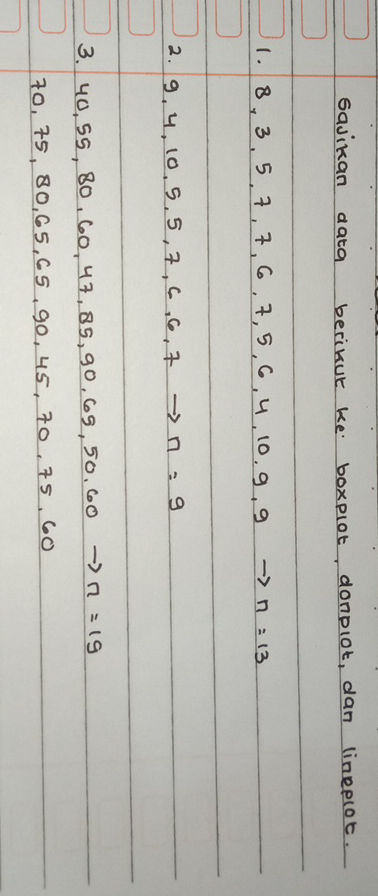 Sajikan data berikut ke boxplot, donplot, dan lineplot.
1. 8, 3, 5, 7, 7, 6, 7, 5, 6, 4, 10, 9, 9 → n = 13
2. 9, 4, 10, 5, 5, 7, 6, 6, 7 → n = 9
3. 40, 55, 80, 60, 47, 85, 90, 65, 50, 60 → n = 19
70, 75, 80, 65, 65, 90, 45, 70, 75, 60